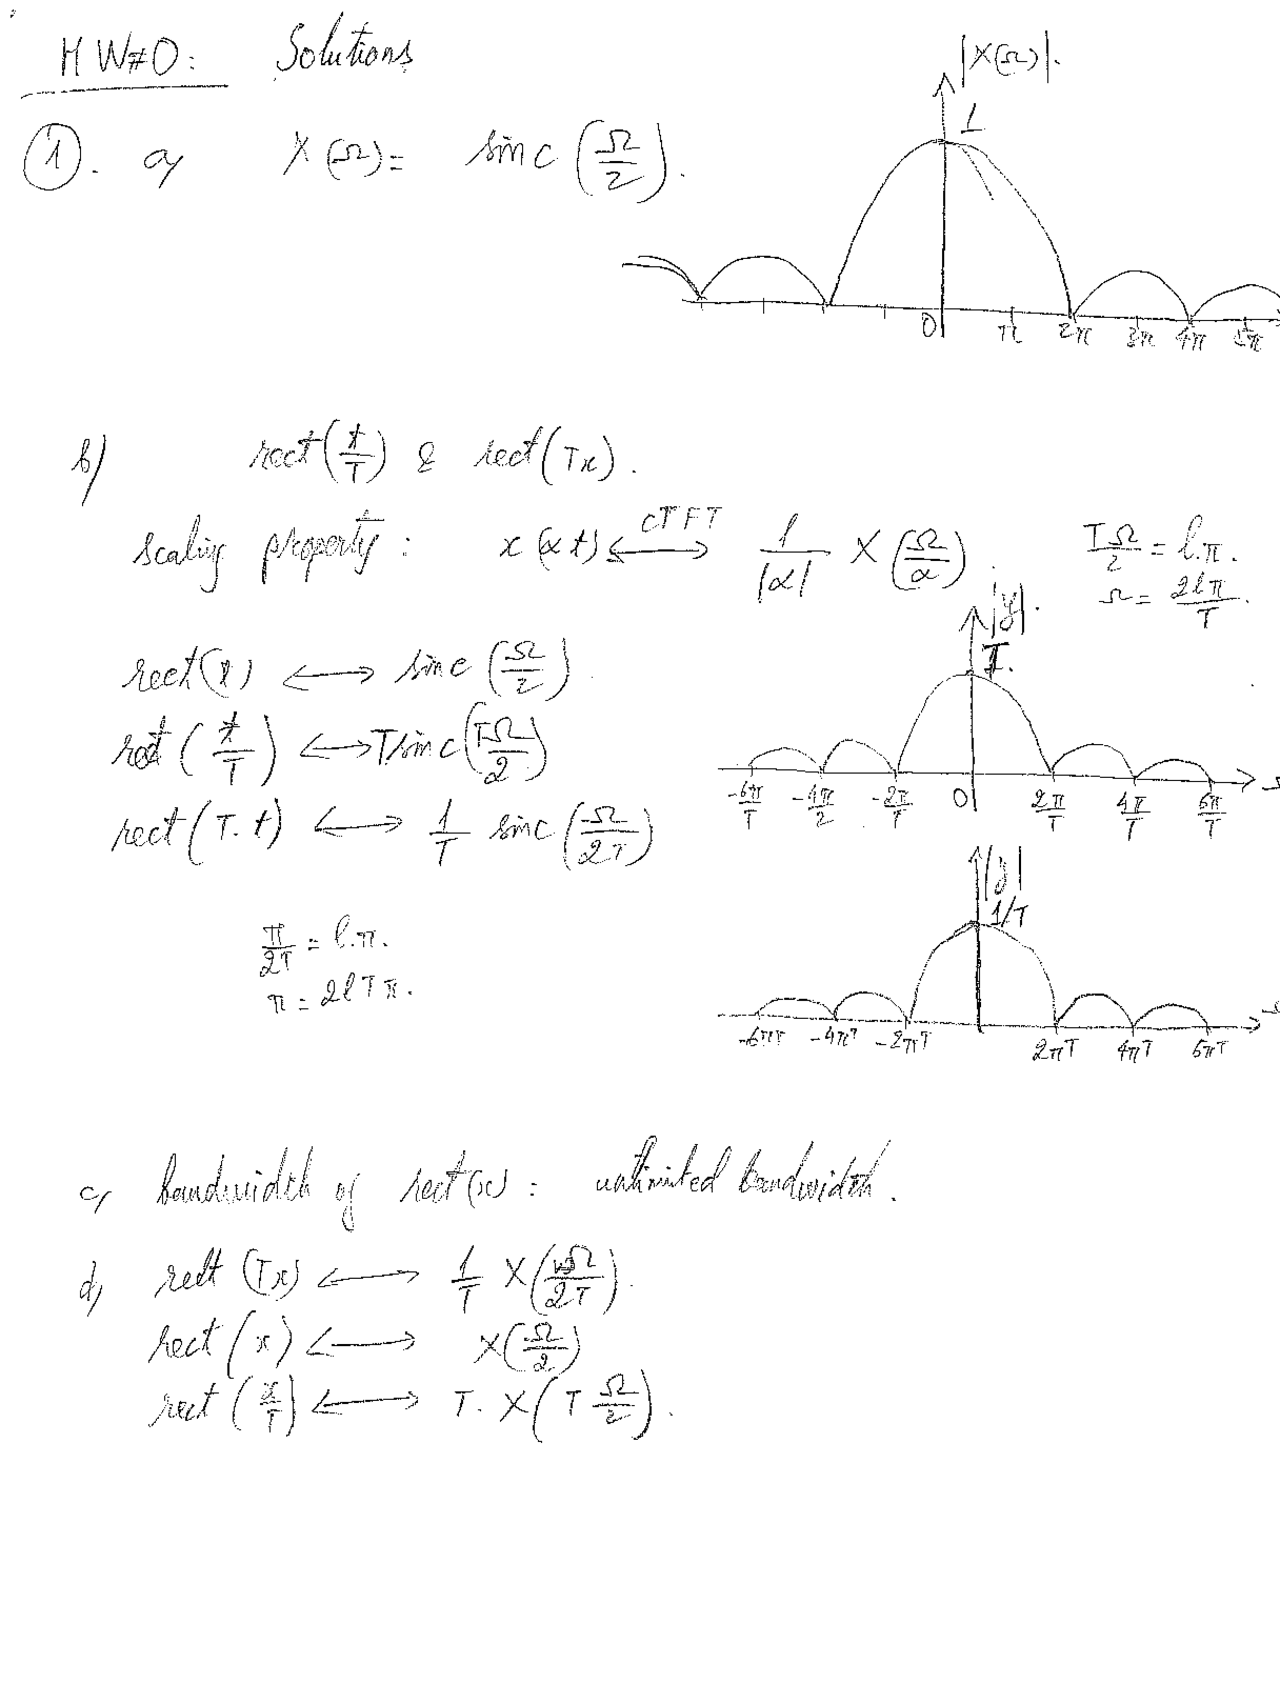 HW#0: Solutions
|X(Ω)|.
1
① . a) X(Ω) = sinc(Ω/2).
0 π 2π 3π 4π 5π
b) rect(t/T) & rect(Tx).
scaling property: x(αt) ⟷ CTFT 1/|α| X(Ω/α).
TΩ/2 = l.π.
Ω = 2lπ/T.
|y|.
T.
rect(t) ⟷ sinc(Ω/2).
rect(t/T) ⟷ T sinc(TΩ/2)
-6π/T -4π/2 -2π/T 0 2π/T 4π/T 6π/T
rect(T.t) ⟷ 1/T sinc(Ω/2T)
|y|
1/T
π/2T = l.π.
π = 2lTπ.
-6πT -4πT -2πT 2πT 4πT 6πT
c) bandwidth of rect(x): unlimited bandwidth.
d) rect(Tx) ⟷ 1/T X(Ω/2T).
rect(x) ⟷ X(Ω/2)
rect(x/T) ⟷ T. X(T Ω/2).